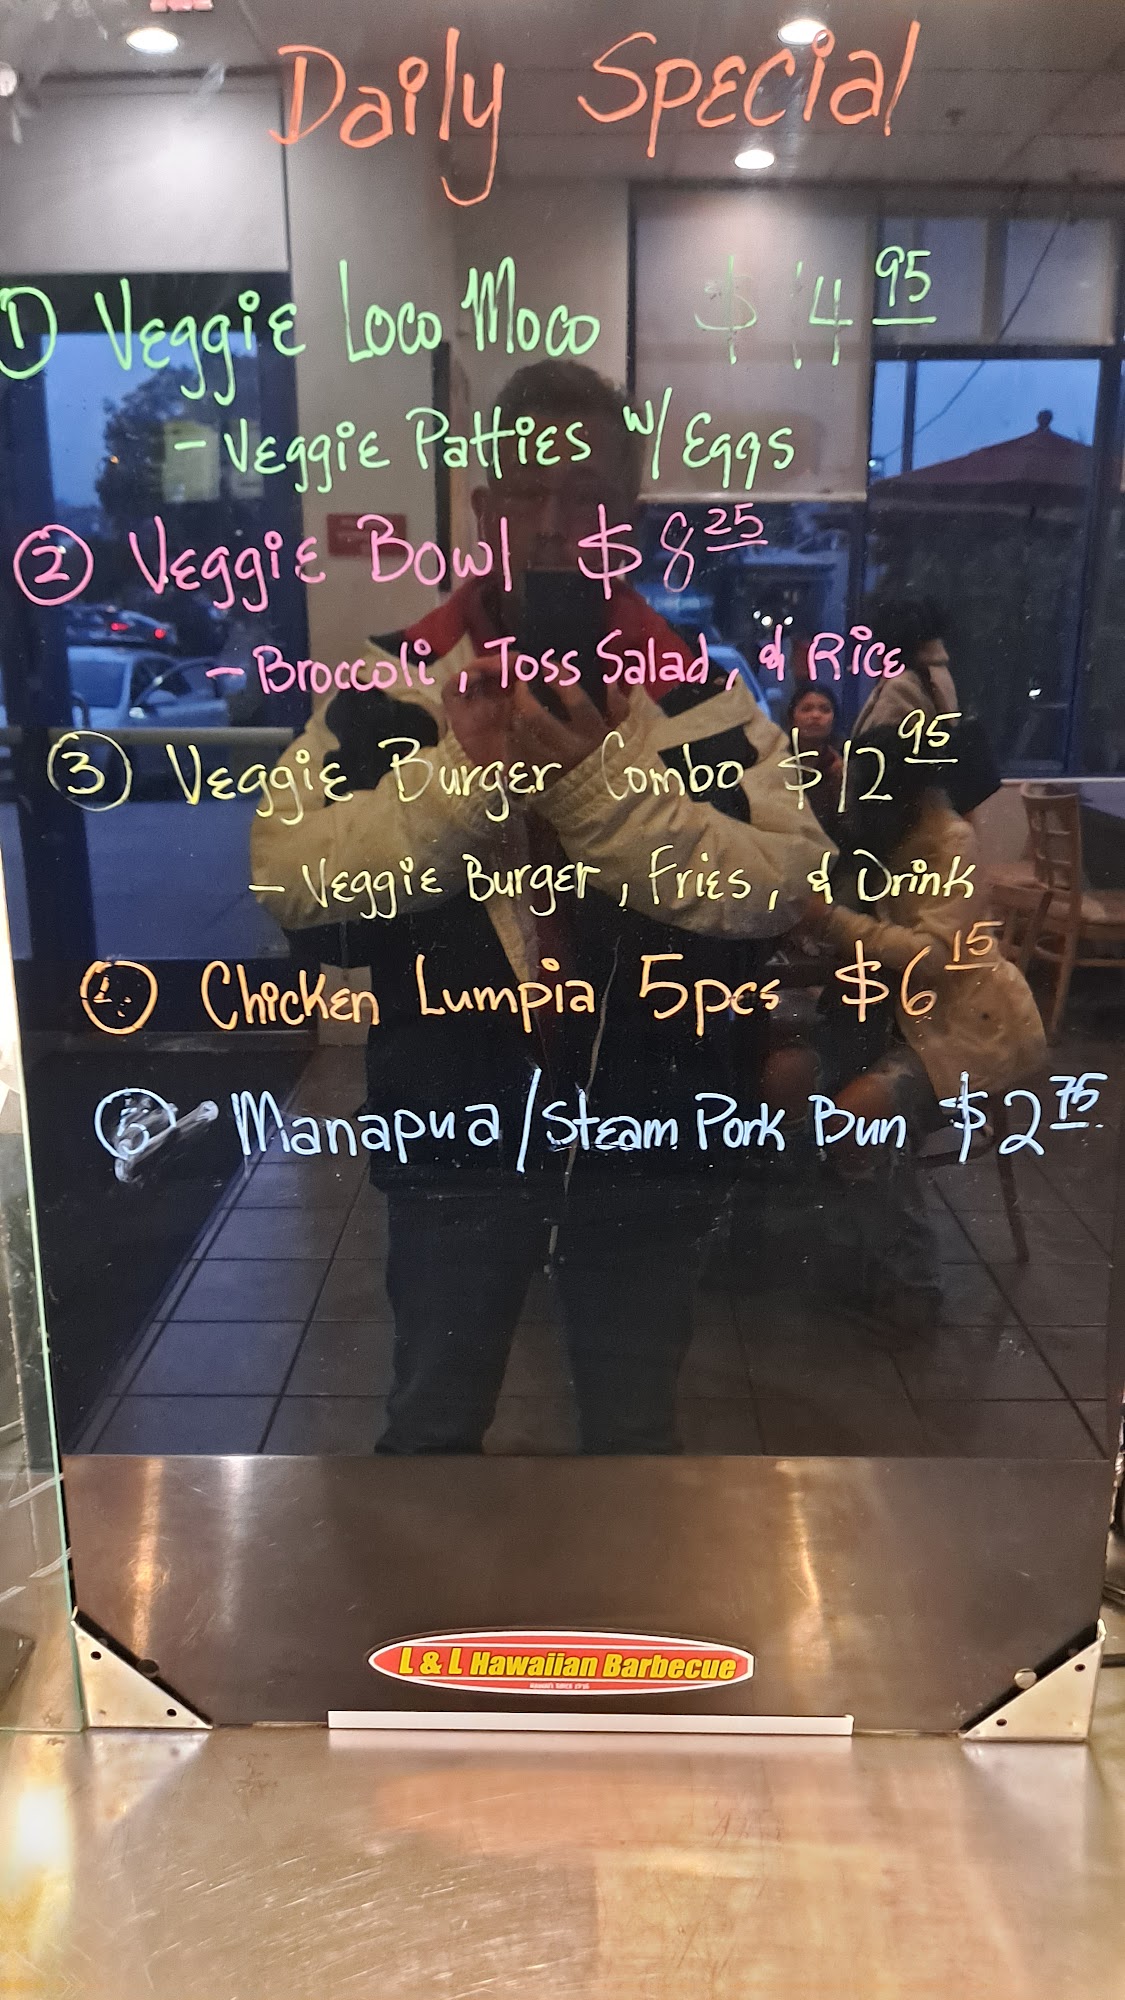 Daily Special
1) Veggie Loco Moco $14 95
- Veggie Patties w/ Eggs
2 Veggie Bowl $8 25
- Broccoli, Toss Salad, & Rice
3 Veggie Burger Combo $12 95
- Veggie Burger, Fries, & Drink
Chicken Lumpia 5pcs $6 15
5 Manapua/Steam Pork Bun $2 75
L & L Hawaiian Barbecue